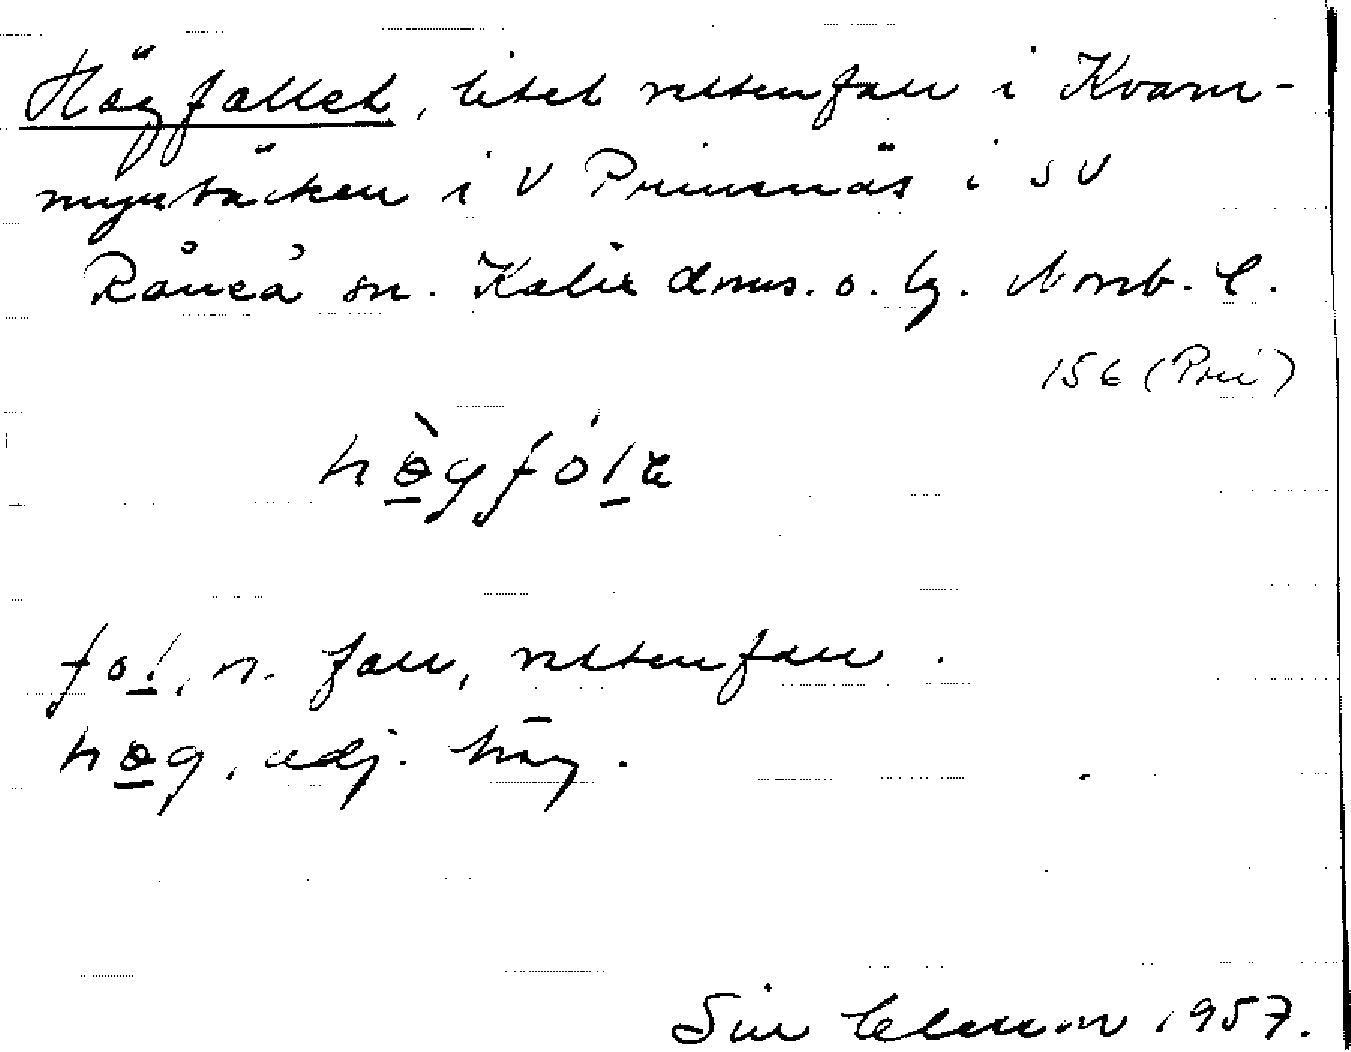 Högfallet, litet vattenfall i Kvarn-
myrbäcken i V Prinsnäs i SV
Råneå sn. Kalix dms. o. lg. Norrb. l.
156 (Pri)
hø̱̀gfóḻɛ
foḻ, n. fall, vattenfall.
hø̱g, adj. hög.
1957.